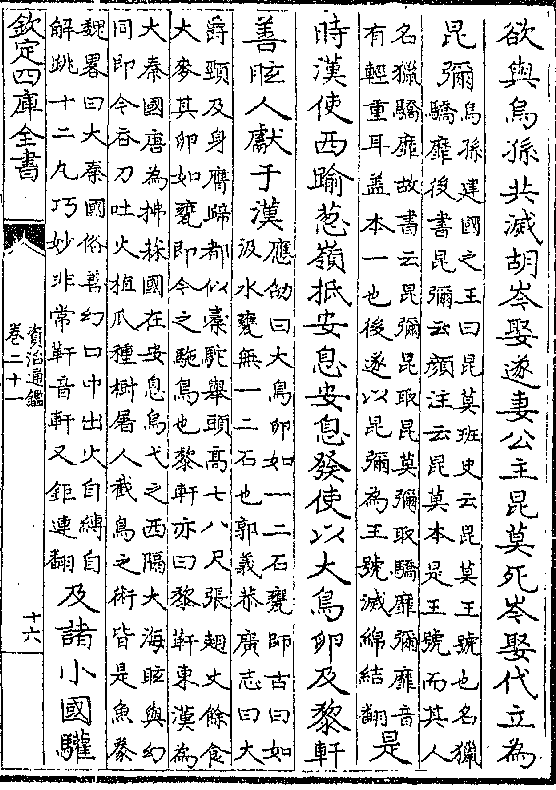 欲與烏孫共滅胡岑娶遂妻公主昆莫死岑娶代立為
昆彌
烏孫建國之王曰昆莫班史云昆莫王號也名獵
驕靡後書昆彌云顔注云昆莫本是王號而其人
名獵驕靡故書云昆彌昆取昆莫彌取驕靡彌靡音
有輕重耳盖本一也後遂以昆彌為王號滅綿結翻
是
時漢使西踰葱嶺抵安息安息發使以大鳥卵及黎軒
善眩人獻于漢
應劭曰大鳥卵如一二石甕師古曰如
汲水甕無一二石也郭義恭廣志曰大
爵頸及身膺蹄都似橐駝舉頭高七八尺張翅丈餘食
大麥其卵如甕即今之駞鳥也黎軒亦曰黎靬東漢為
大秦國唐為拂菻國在安息烏弋之西隔大海眩與幻
同即今吞刀吐火植瓜種樹屠人截馬之術皆是魚豢
魏畧曰大秦國俗善幻口中出火自縛自
解跳十二丸巧妙非常靬音軒又鉅連翻
及諸小國驩
欽定四庫全書
資治通鑑
卷二十一
十六